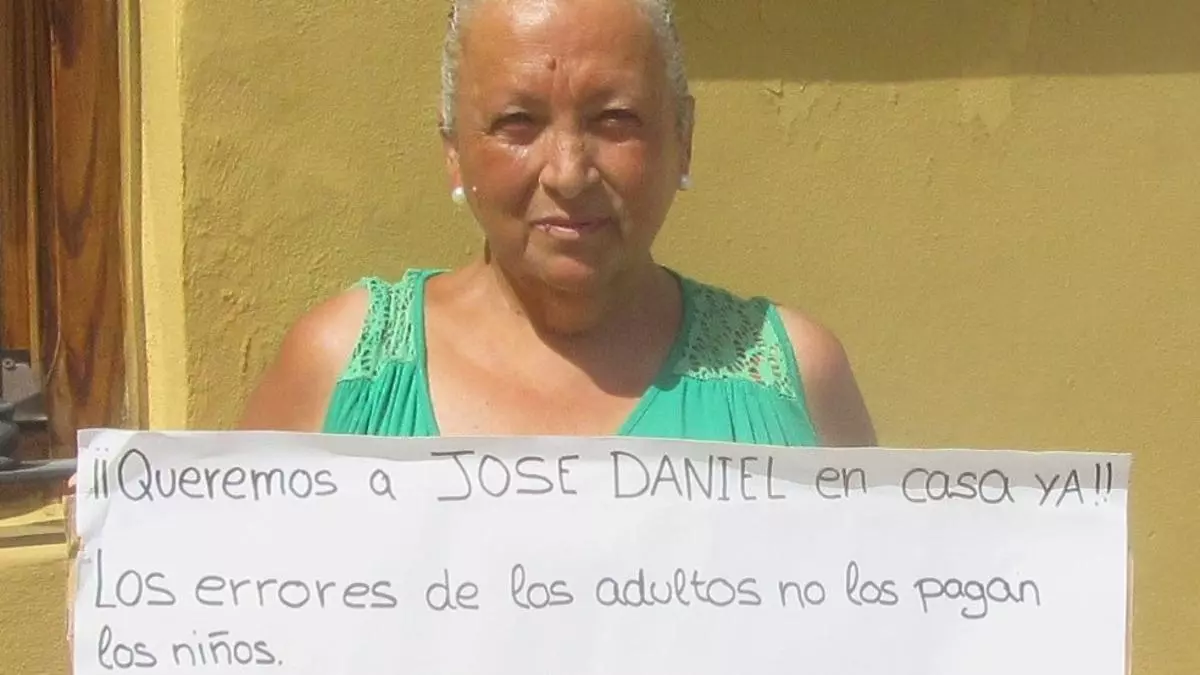 ¡¡Queremos a JOSE DANIEL en casa YA!!
Los errores de los adultos no los pagan
los niños.